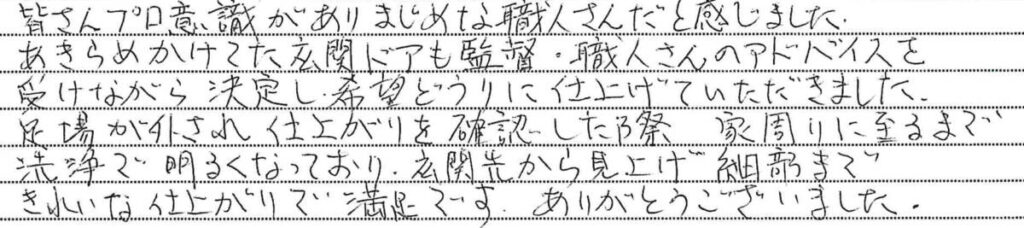 皆さんプロ意識がありまじめな職人さんだと感じました.
あきらめかけてた玄関ドアも監督・職人さんのアドバイスを
受けながら決定し希望どうりに仕上げていただきました.
足場が外され仕上がりを確認した際 家周りに至るまで
洗浄で明るくなっており.玄関先から見上げ細部まで
きれいな仕上がりで満足です.ありがとうございました.